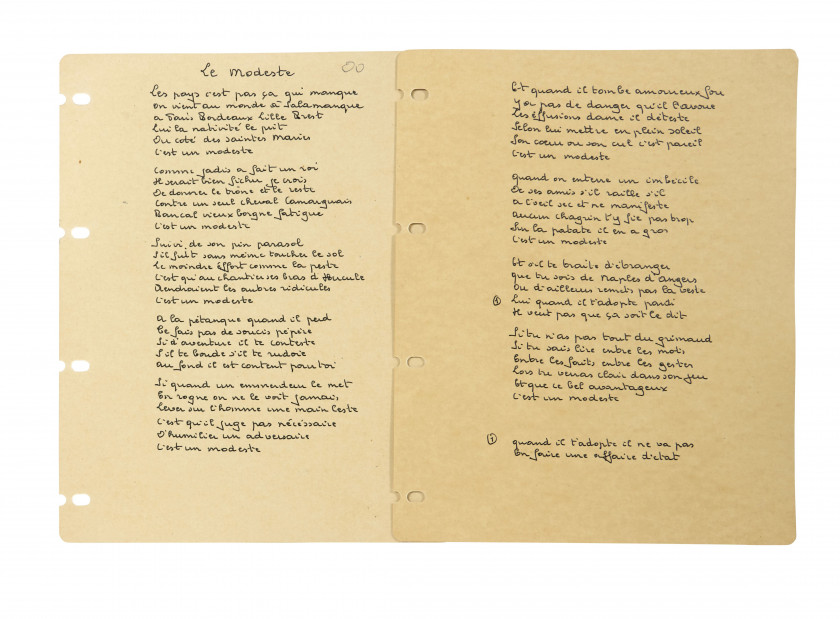 Le Modeste
Les pays c'est pas ça qui manque
On vient au monde à Salamanque
A Paris Bordeaux Lille Brest
Lui la nativité le prit
Du coté des Saintes Maries
C'est un modeste
Comme jadis a fait un roi
Il serait bien fichu je crois
De donner le trône et le reste
Contre un seul cheval Camarguais
Bancal vieux borgne fatigué
C'est un modeste
Suivi de son pin parasol
S'il fuit sans même toucher le sol
Le moindre effort comme la peste
C'est qu'au chantier ses bras d'Hercule
Rendraient les autres ridicules
C'est un modeste
A la pétanque quand il perd
Te fais pas de soucis pépère
Si d'aventure il te conteste
S'il te boude s'il te rudoie
Au fond il est content pour toi
Si quand un emmerdeur le met
En rogne on ne le voit jamais
Lever sur l'homme une main leste
C'est qu'il juge pas nécessaire
D'humilier un adversaire
C'est un modeste
Et quand il tombe amoureux fou
Y a pas de danger qu'il l'avoue
Les effusions dame il déteste
Selon lui mettre en plein soleil
Son cœur ou son cul c'est pareil
C'est un modeste
Quand on enterre un imbécile
De ses amis s'il raille s'il
A l'oeil sec et ne manifeste
Aucun chagrin t'y fie pas trop
Sur la patate il en a gros
C'est un modeste
Et s'il te traite d'étranger
Que tu sois de Naples d'Angers
Ou d'ailleurs remets pas la veste
① Lui quand il t'adopte pardi
Il veut pas que ça soit le dit
Si tu n'as pas tout du grimaud
Si tu sais lire entre les mots
Entre les faits entre les gestes
Lors tu verras clair dans son jeu
Et que ce bel avantageux
C'est un modeste
① Quand il t'adopte il ne va pas
En faire une affaire d'état